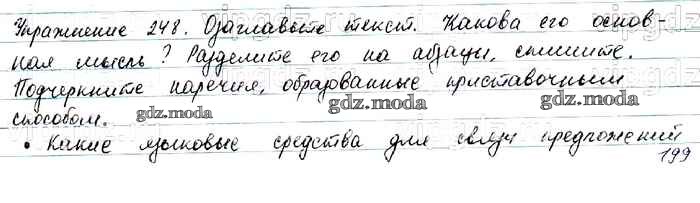 Упражнение 248. Озаглавьте текст. Какова его основ-
ная мысль? Разделите его на абзацы, спишите.
Подчеркните наречия, образованные приставочным
gdz.moda gdz.moda gdz.moda
способом.
• Какие языковые средства для связи предложений
199